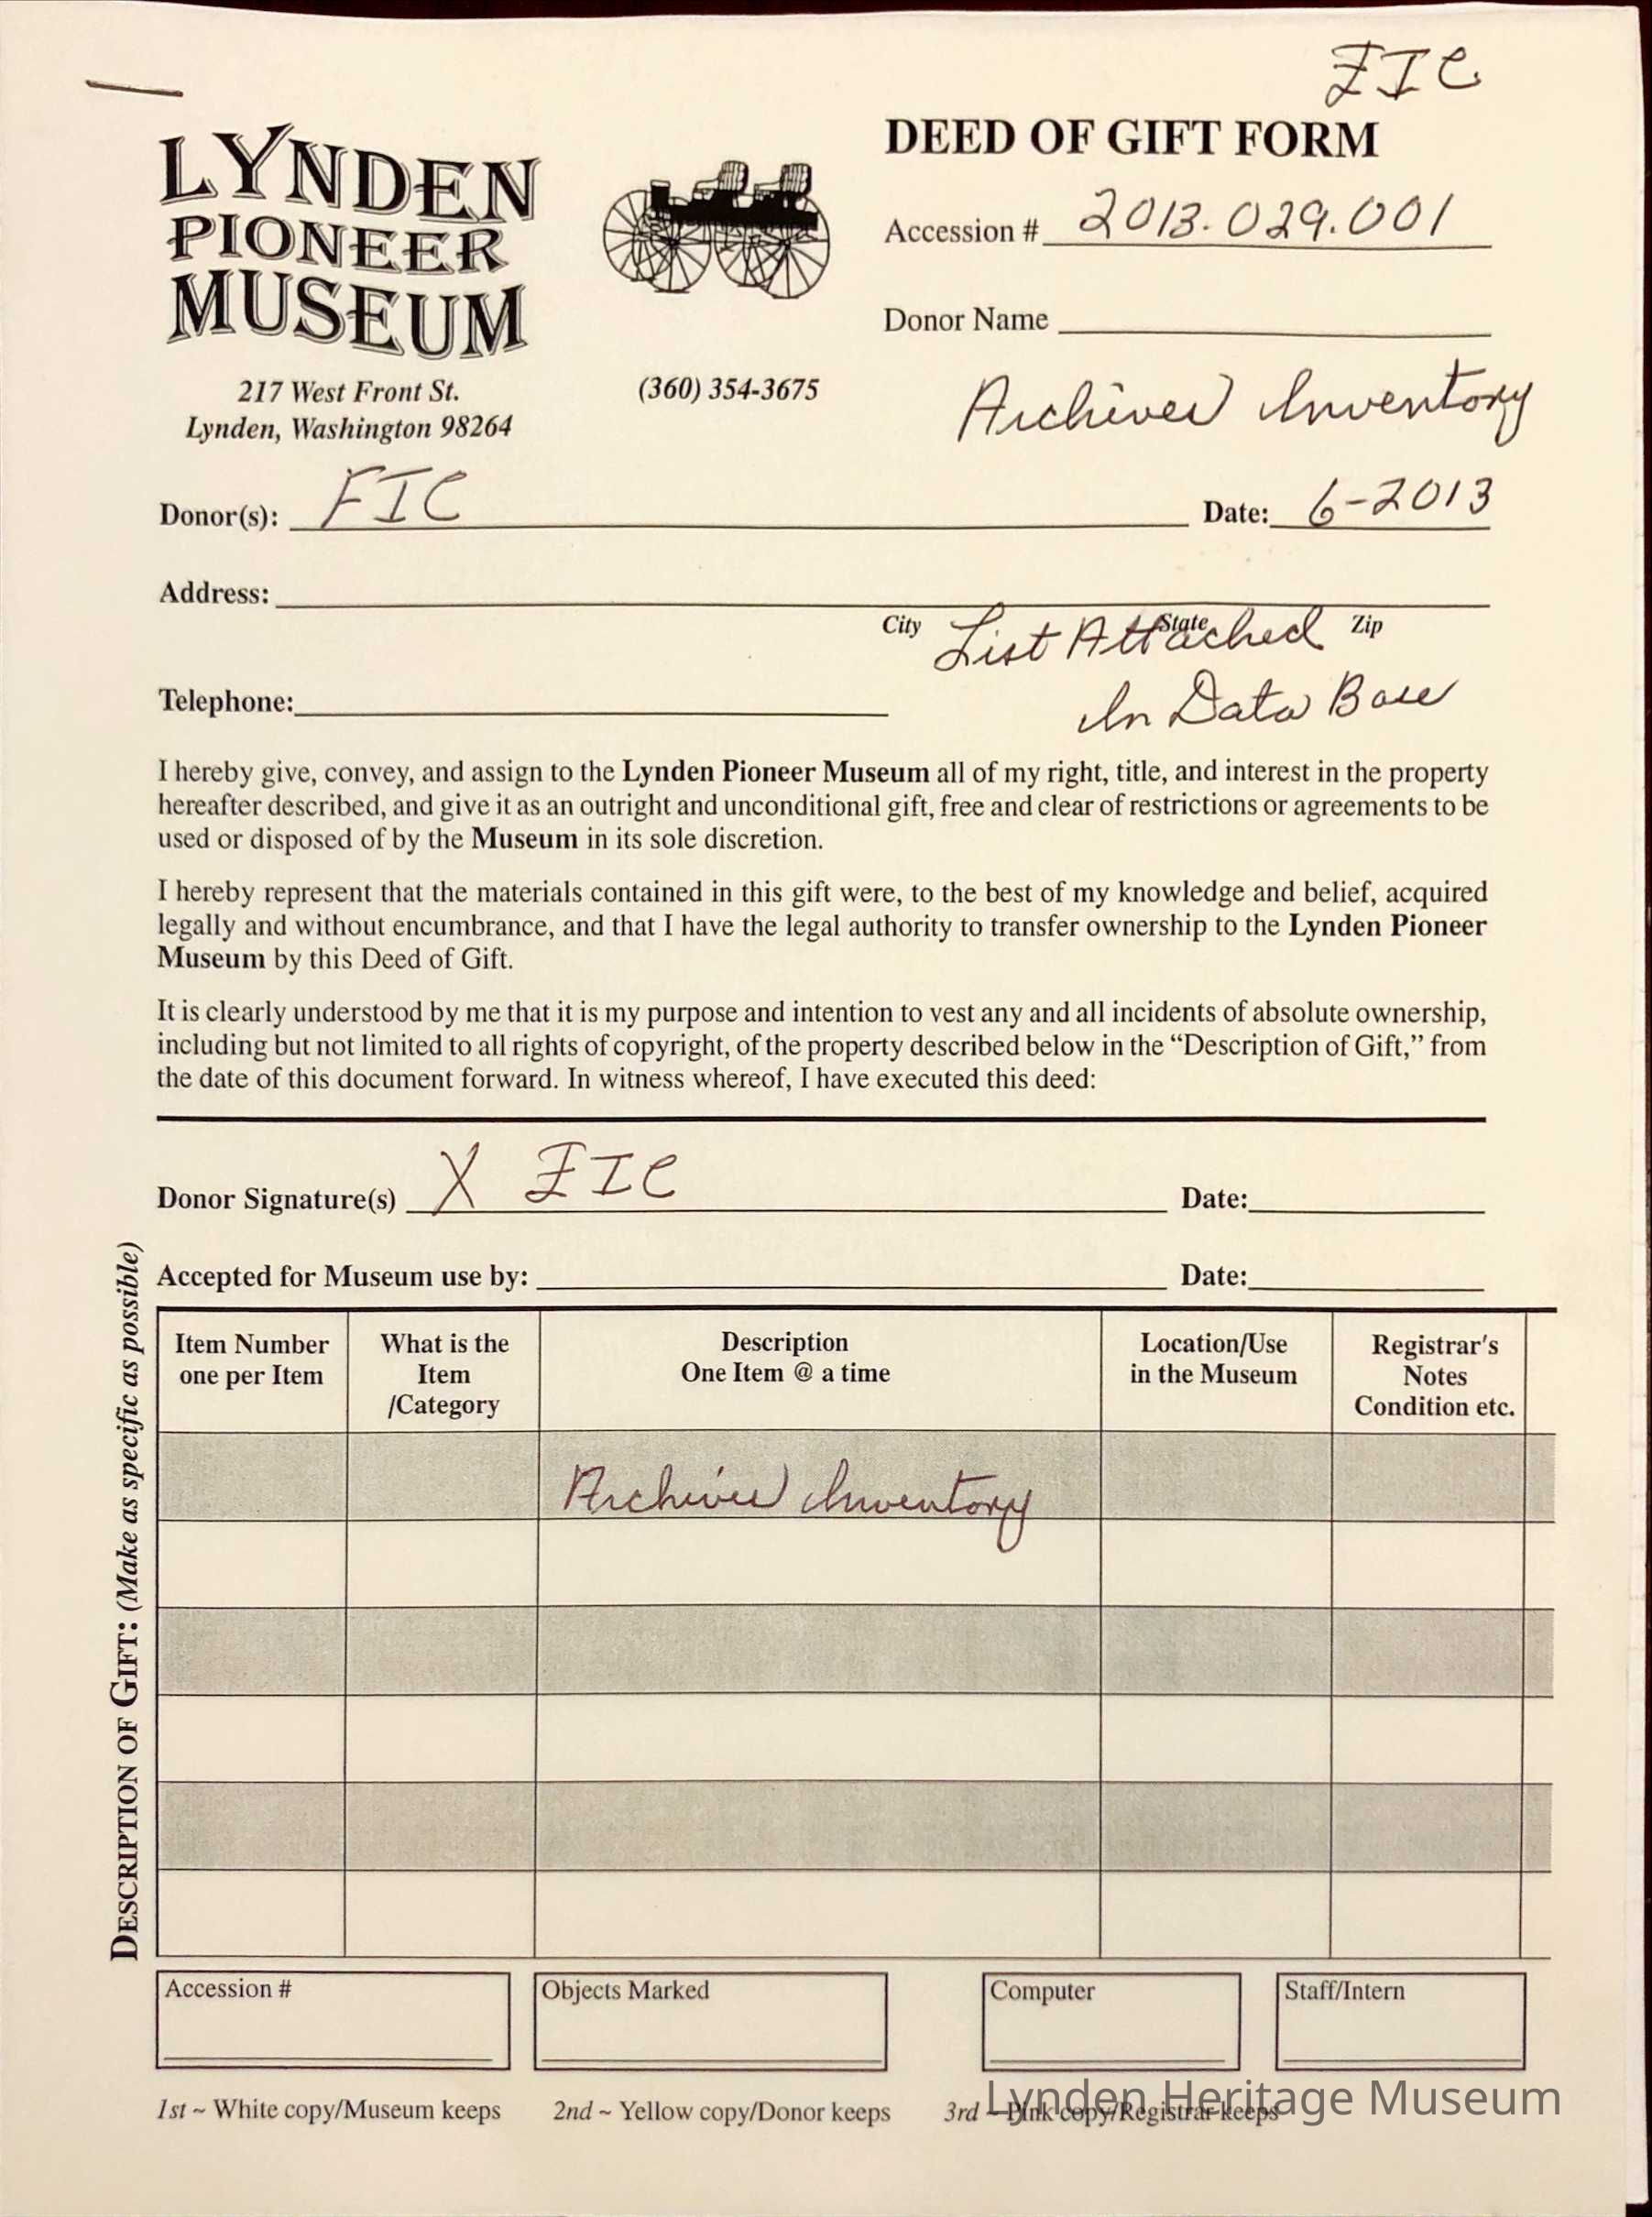 FIC
LYNDEN
PIONEER
MUSEUM
217 West Front St.
Lynden, Washington 98264
(360) 354-3675
DEED OF GIFT FORM
Accession # 2013.029.001
Donor Name
Archives Inventory
Donor(s): FIC Date: 6-2013
Address:
City State Zip
List Attached
Telephone:
In Data Base
I hereby give, convey, and assign to the Lynden Pioneer Museum all of my right, title, and interest in the property
hereafter described, and give it as an outright and unconditional gift, free and clear of restrictions or agreements to be
used or disposed of by the Museum in its sole discretion.
I hereby represent that the materials contained in this gift were, to the best of my knowledge and belief, acquired
legally and without encumbrance, and that I have the legal authority to transfer ownership to the Lynden Pioneer
Museum by this Deed of Gift.
It is clearly understood by me that it is my purpose and intention to vest any and all incidents of absolute ownership,
including but not limited to all rights of copyright, of the property described below in the “Description of Gift,” from
the date of this document forward. In witness whereof, I have executed this deed:
Donor Signature(s) X FIC Date:
Accepted for Museum use by: Date:
DESCRIPTION OF GIFT: (Make as specific as possible)
Item Number
one per Item
What is the
Item
/Category
Description
One Item @ a time
Location/Use
in the Museum
Registrar's
Notes
Condition etc.
Archives Inventory
Accession #
Objects Marked
Computer
Staff/Intern
1st ~ White copy/Museum keeps
2nd ~ Yellow copy/Donor keeps
3rd ~ Pink copy/Registrar keeps
Lynden Heritage Museum